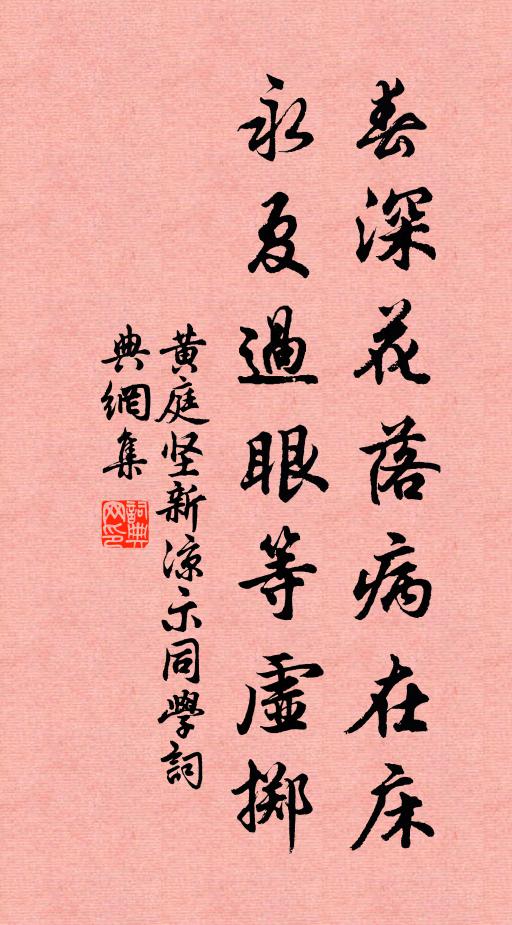 春深花落病在床
永夏過眼等虛擲
黄庭坚新涼示同學詞
典網集
詞典网印